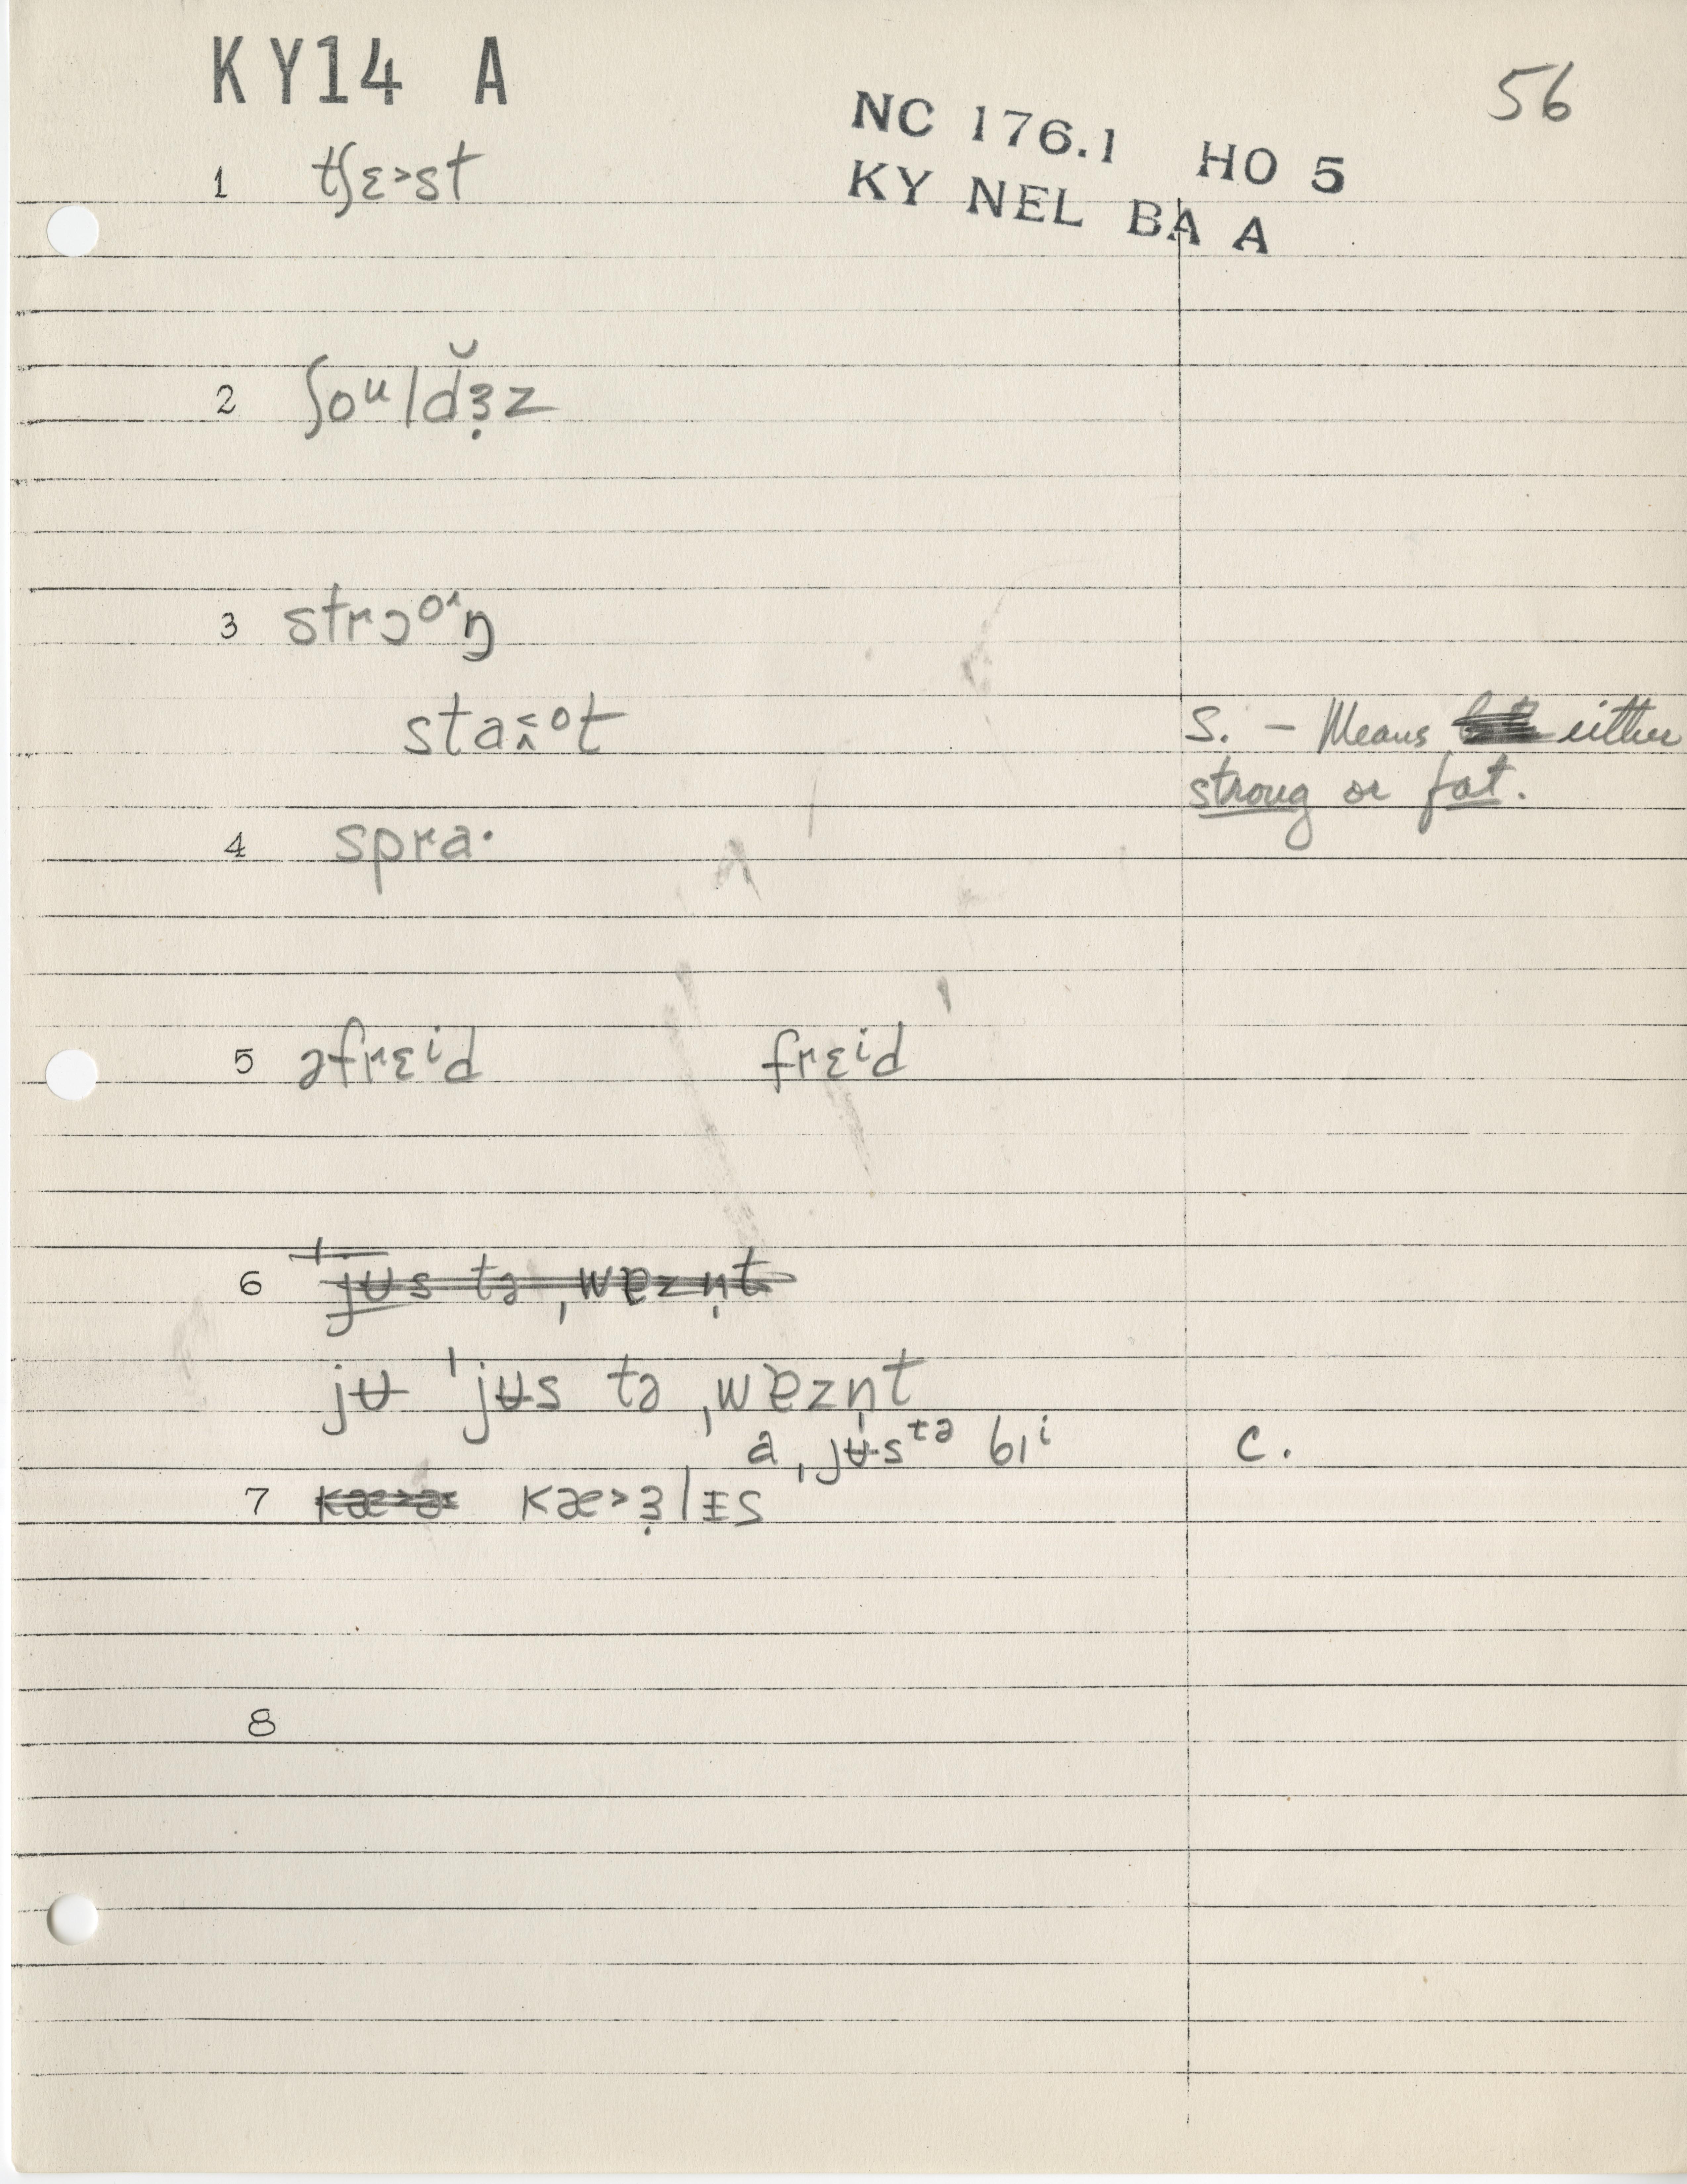 KY14 A
56
NC 176.1 HO 5
KY NEL BA A
1 tʃɛ˃st
2 ʃoᶷld̆ɜ̣z
3 strɔᵒ˄ŋ
sta˂˰ᵒt S. – Means either
strong or fat.
4 spra·
5 əfrɛⁱd frɛⁱd
6 jʉs tə ˌwɐzn̩t
jʉ ˈjʉs tə ˌwɐzn̩t
a ˌjʉsᵗᵊ bɪⁱ C.
7 kæ˃ɜ̣lɪs
8